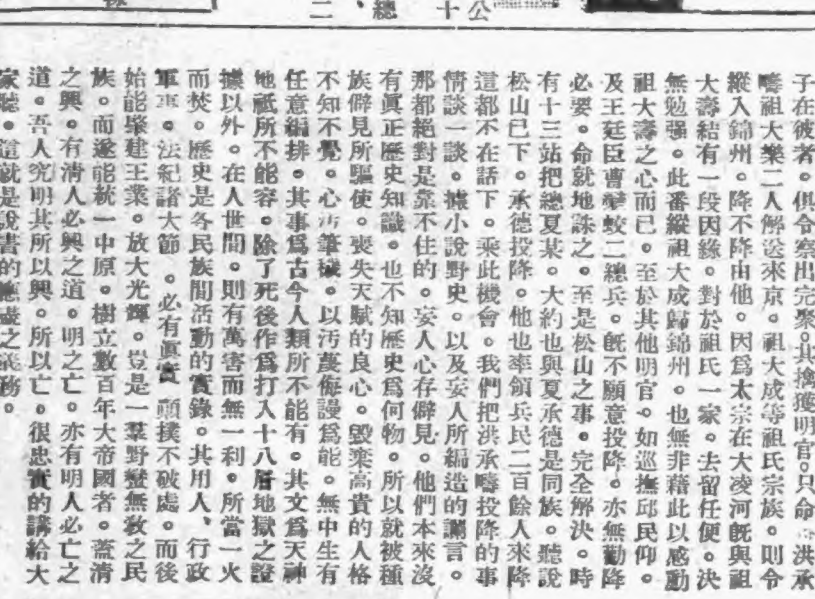 公
十
總、
二
子在彼者。俱令察出完聚。其擒獲明官。只命 洪承
疇祖大樂二人解送來京。祖大成等祖氏宗族。則令
縱入錦州。降不降由他。因爲太宗在大凌河既與祖
大壽結有一段因緣。對於祖氏一家。去留任便。決
無勉强。此番縱祖大成歸錦州。也無非藉此以感動
祖大壽之心而已。至於其他明官。如巡撫邱民仰。
及王廷臣曹變蛟二總兵。既不願意投降。亦無勸降
必要。命就地誅之。至是松山之事。完全解決。時
有十三站把總夏某。大約也與夏承德是同族。聽說
松山已下。承德投降。他也率領兵民二百餘人來降
這都不在話下。乘此機會。我們把洪承疇投降的事
情談一談。據小說野史。以及妄人所編造的讕言。
那都絕對是靠不住的。妄人心存僻見。他們本來沒
有眞正歷史知識。也不知歷史爲何物。所以就被種
族僻見所驅使。喪失天賦的良心。毀棄高貴的人格
不知不覺。心汚筆穢。以汚衊侮謾爲能。無中生有
任意編排。其事爲古今人類所不能有。其文爲天神
地祇所不能容。除了死後作爲打入十八層地獄之證
據以外。在人世間。則有萬害而無一利。所當一火
而焚。歷史是各民族間活動的實錄。其用人、行政
軍事。法紀諸大節 。必有眞實 顚撲不破處。而後
始能肇建王業。放大光輝。豈是一羣野蠻無敎之民
族。而遂能統一中原。樹立數百年大帝國者。蓋淸
之興。有淸人必興之道。明之亡。亦有明人必亡之
道。吾人究明其所以興。所以亡。很忠實的講給大
家聽。這就是說書的應盡之義務。